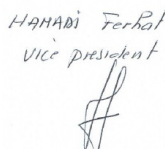 HAMADi Ferhat
Vice president